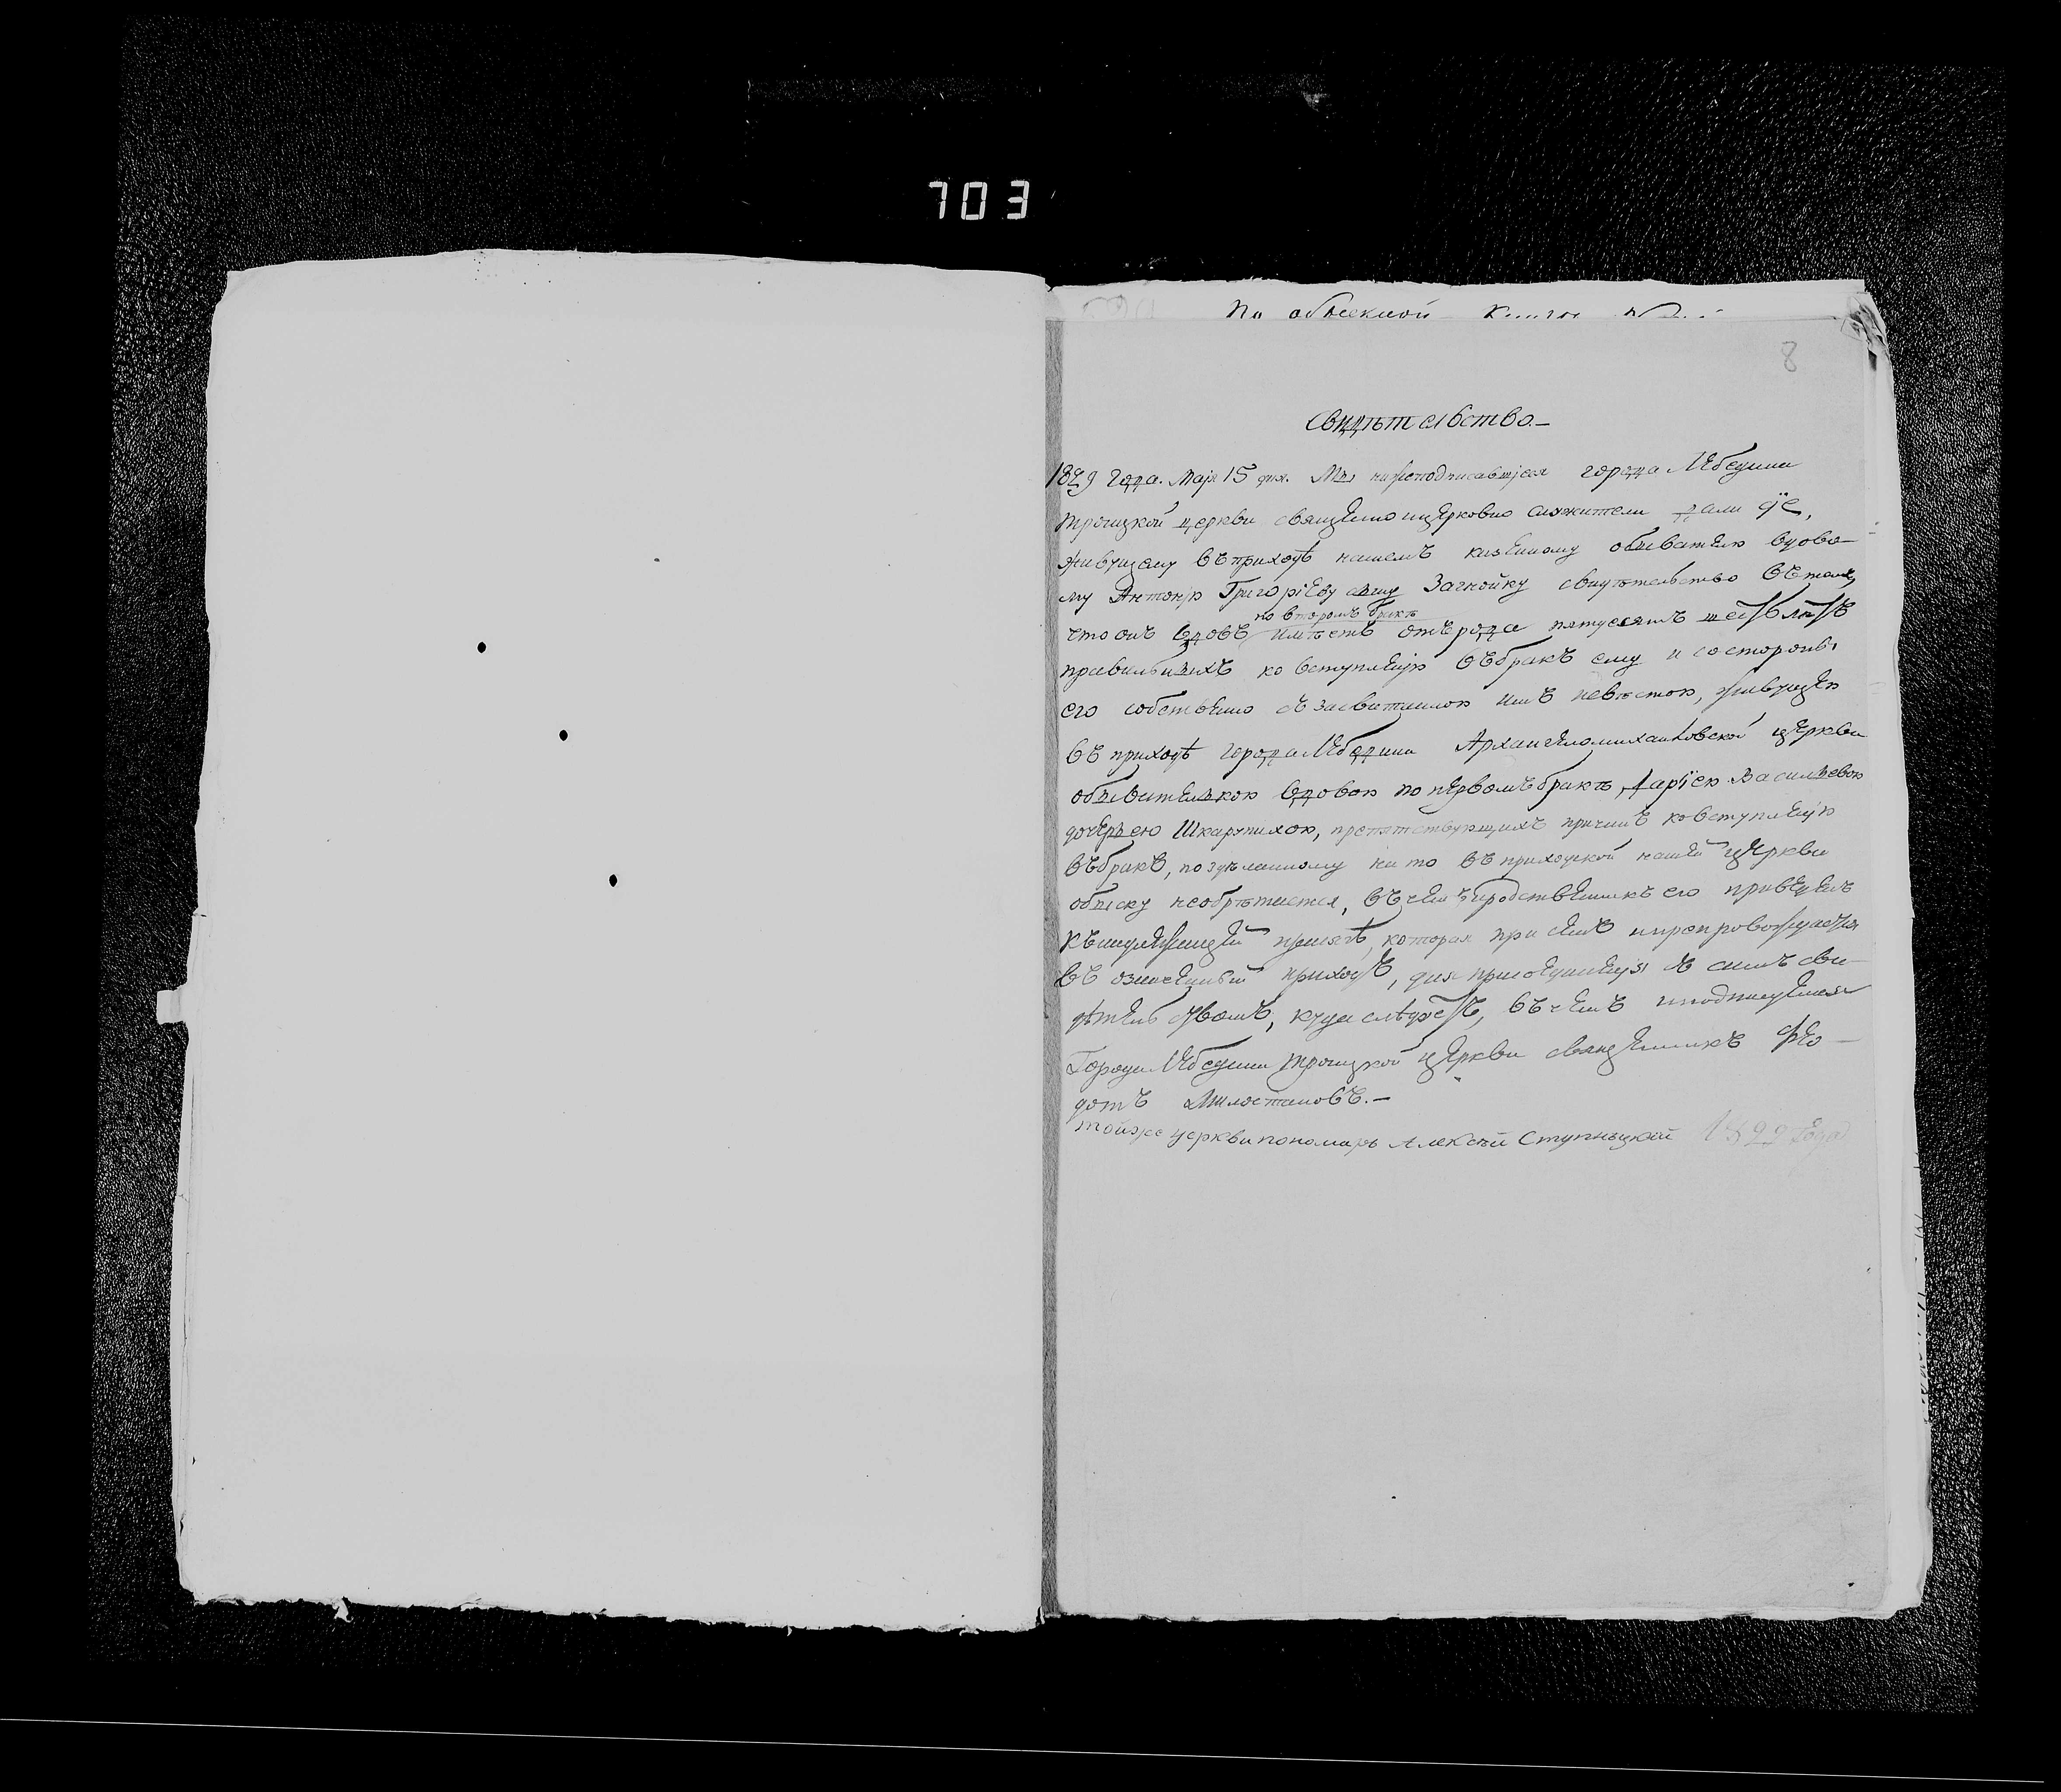 703
По обыскной Книге №
8
Свидѣтельство.—
1829 года. Маія 15 дня. Мы нижеподписавшіеся города Лебедина
троицкой церкви священноицерковно служители дали сіе,
живущему въприходѣ нашемъ казенному обывателю вдово–
му Антонію Григоріеву сыну Загнойку свидѣтельство вътомъ,
по второмъ бракѣ
что онъ вдовъ имѣетъ отърода пятдесятъ шесть лѣтъ
правильныхъ ко вступленію въбракъ ему и состороны
его собственно съ засватанною имъ невѣстою, живущею
въ приходѣ города Лебедина Архангеломихайловской церкви
обывателькою вдовою по первомъ бракѣ, Даріею Васильевою
дочерью Шкарупихою, препятствующихъ причинъ ковступленію
въбракъ, поздѣланному на то въ приходской нашей церкви
обыску необрѣтается, въ чемъ иродственникъ его приведенъ
къ надлежащей присягѣ, которая при семъ ипрепровождается
въ означенный приходъ, для присоединенія съ симъ сви–
дѣтельствомъ, куда слѣдуетъ, въ чемъ иподписуемся
Города Лебедина троицкой церкви священникъ Фео–
дотъ Милостановъ.—
тойже церкви пономарь Алексѣй Ступницкій 1829 года